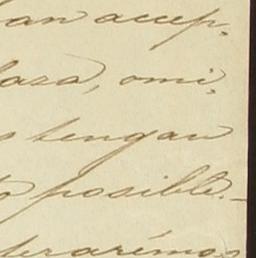 an accep-
laza, omi-
s tengan
o posible.-
eraremos